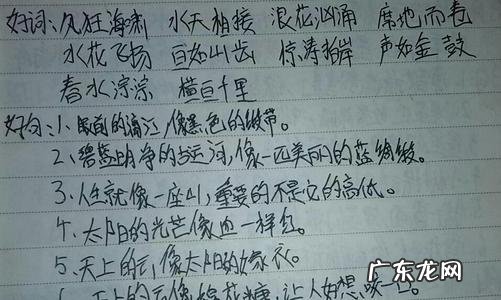 好词:风狂海啸 水天相接 浪花汹涌 席地而卷
水花飞扬 百如山齿 惊涛拍岸 声如金鼓
春水淙淙 横亘千里
好句:1、眼前的漓江,像黑色的缎带。
2、碧蓝明净的运河,像一匹美丽的蓝绸缎。
3、人生就像一座山,重要的不是它的高低。
4、太阳的光芒像血一样红。
5、天上的云,像太阳的嫁衣。
天上的云像棉花糖,让人好想咬一口。
广东龙网